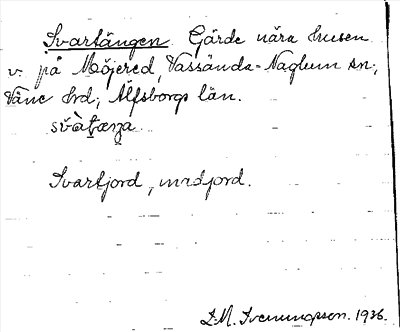 Svartängen. Gärde nära husen
v. på Möjered, Vassända-Naglum sn.,
Väne hrd; Älfsborgs län.
svàtæŋa
Svartjord, madjord.
D.M. Svenungsson. 1936.